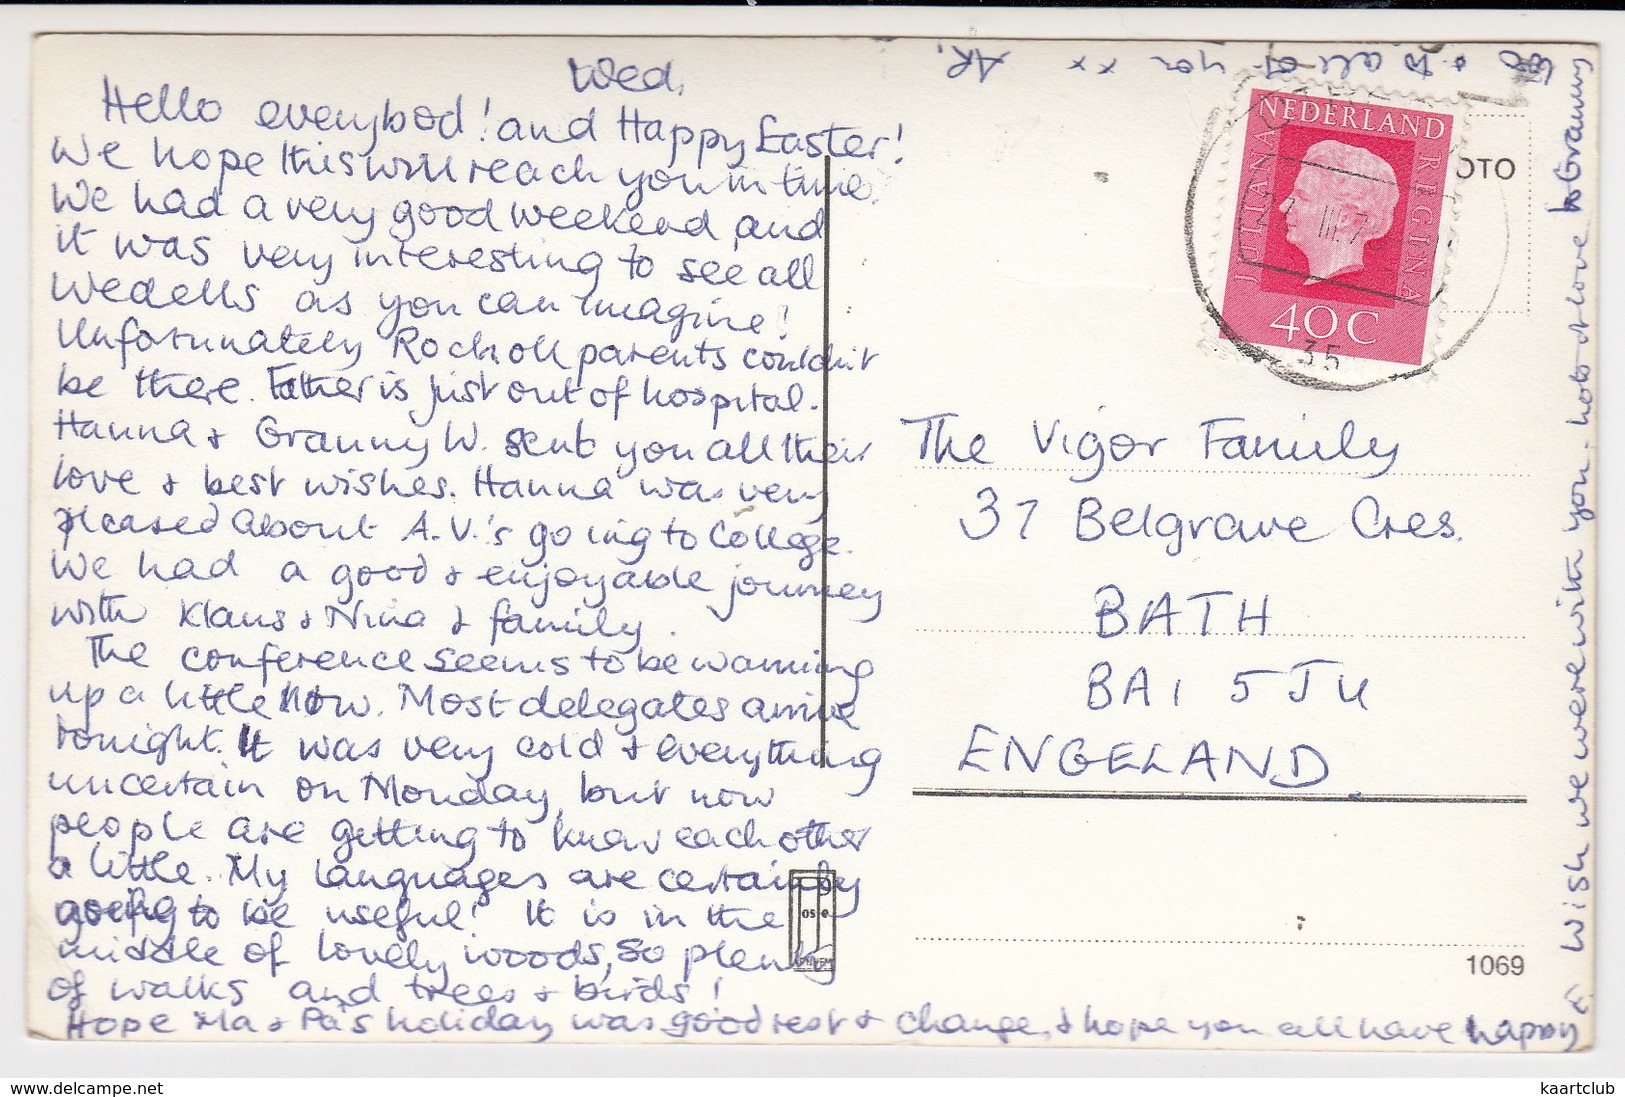 Wed.
Hello everybod! and Happy Easter!
We hope this will reach you in time.
We had a very good weekend and
it was very interesting to see all
Wedells as you can imagine!
Unfortunately Rockoll parents couldn't
be there. Father is just out of hospital.
Hanna & Granny W. sent you all their
love & best wishes. Hanna was very
pleased about A.V.'s going to College.
We had a good & enjoyable journey
with Klaus & Nina & family.
The conference seems to be warming
up a little now. Most delegates arrive
tonight. It was very cold & everything
uncertain on Monday, but now
people are getting to know each other
a little. My languages are certainly
going to be useful! It is in the
middle of lovely woods, so plenty
of walks and trees & birds!
Hope Ma & Pa's holiday was good rest & change, & hope you all have happy
E. Wish we were with you. hoto & love to Granny
too & to all of you xx AR.
NEDERLAND
JULIANA REGINA
40C
27 III.7
35
OTO
The Vigor Family
37 Belgrave Cres.
BATH
BA1 5JU
ENGELAND.
1069
www.delcampe.net
kaartclub